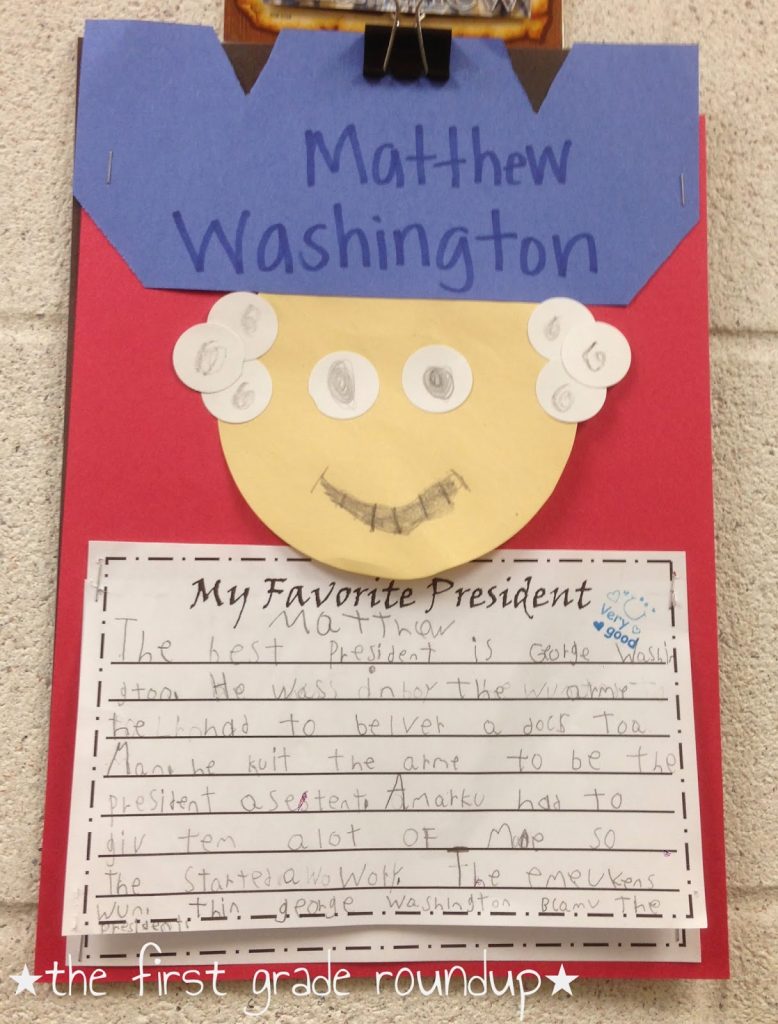 Matthew
Washington
My Favorite President
Very good
Matthew
The best President is George Washin
gton. He was the arme
had to belver a docs toa
Man. he kuit the arme to be the
president asestent. Amarku had to
giv tem alot OF so
the started a Wo Work. The emeukens
wun. thin george washington Bcamu The
president.
★the first grade roundup★